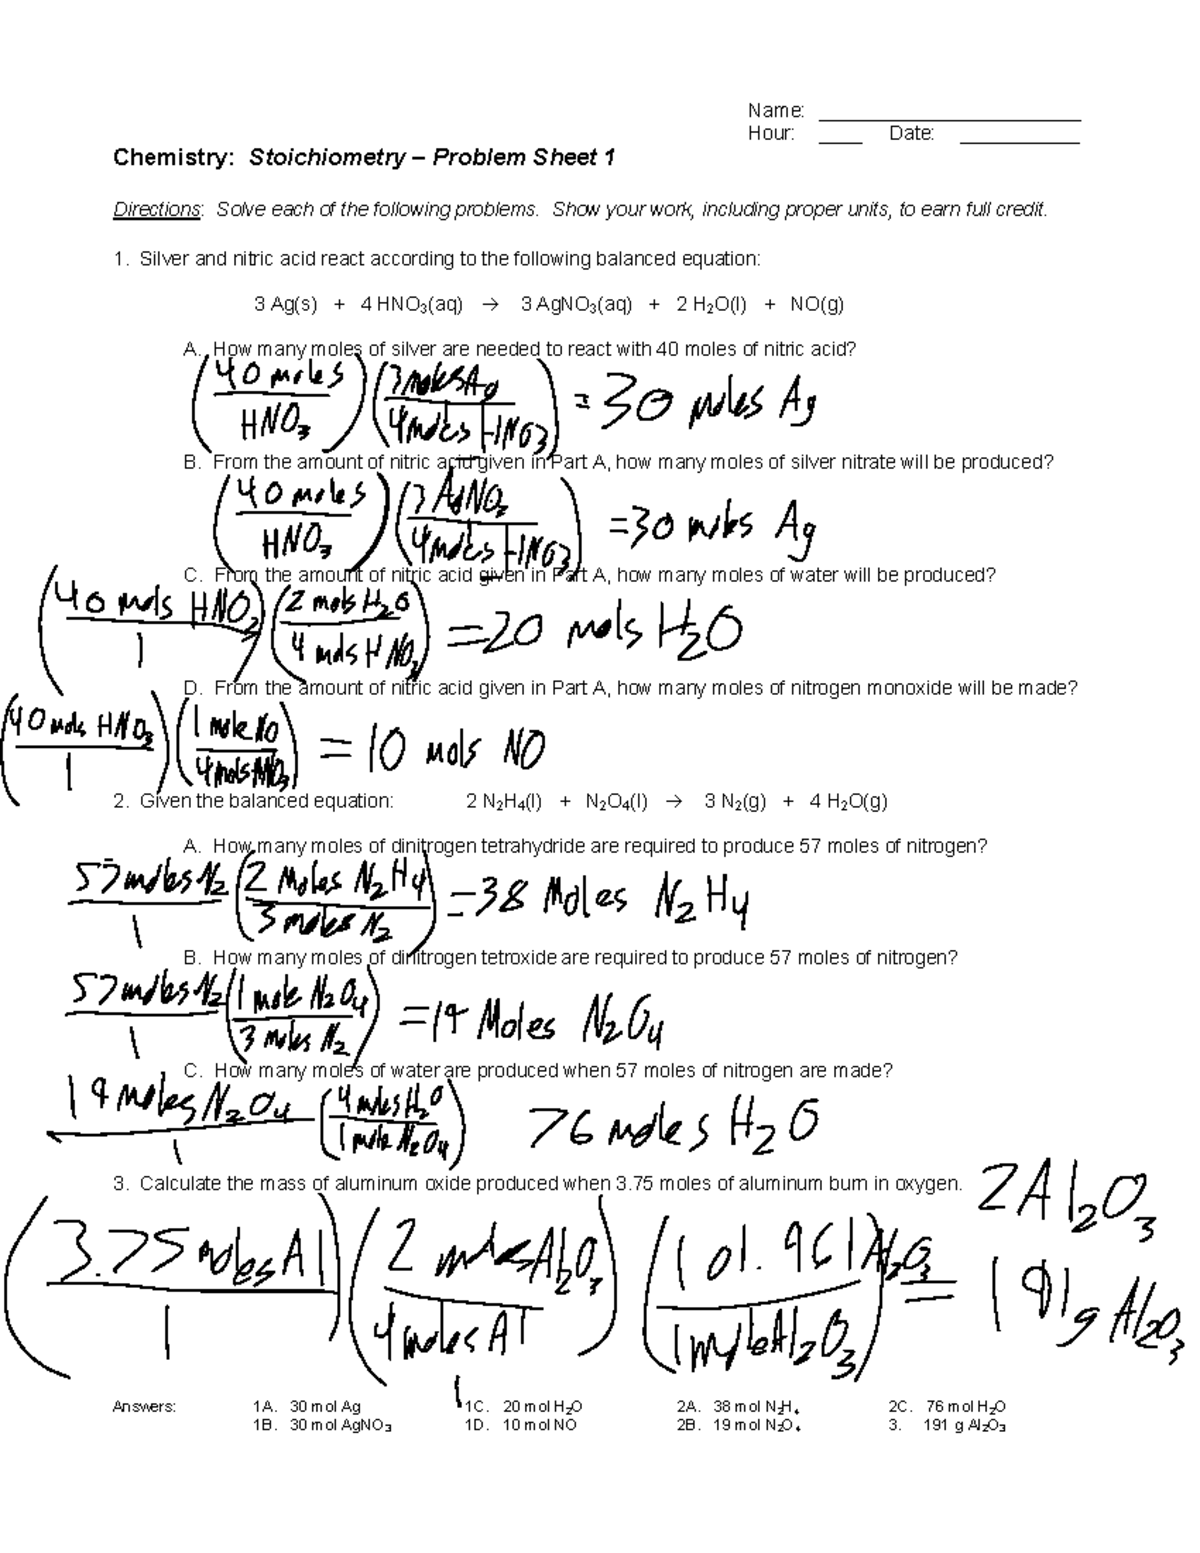 Name: ____________________
Hour: ____ Date: __________
Chemistry: Stoichiometry – Problem Sheet 1
Directions: Solve each of the following problems. Show your work, including proper units, to earn full credit.
1. Silver and nitric acid react according to the following balanced equation:
3 Ag(s) + 4 HNO₃(aq) → 3 AgNO₃(aq) + 2 H₂O(l) + NO(g)
A. How many moles of silver are needed to react with 40 moles of nitric acid?
(40 moles / HNO₃) (3 moles Ag / 4 moles HNO₃) = 30 moles Ag
B. From the amount of nitric acid given in Part A, how many moles of silver nitrate will be produced?
(40 moles / HNO₃) (3 AgNO₂ / 4 moles HNO₃) = 30 moles Ag
C. From the amount of nitric acid given in Part A, how many moles of water will be produced?
(40 mols HNO₃ / 1) (2 mols H₂O / 4 mols HNO₃) = 20 mols H₂O
D. From the amount of nitric acid given in Part A, how many moles of nitrogen monoxide will be made?
(40 mols HNO₃ / 1) (1 mole NO / 4 mols HNO₃) = 10 mols NO
2. Given the balanced equation: 2 N₂H₄(l) + N₂O₄(l) → 3 N₂(g) + 4 H₂O(g)
A. How many moles of dinitrogen tetrahydride are required to produce 57 moles of nitrogen?
57 moles N₂ / 1 (2 Moles N₂H₄ / 3 moles N₂) = 38 Moles N₂H₄
B. How many moles of dinitrogen tetroxide are required to produce 57 moles of nitrogen?
57 moles N₂ / 1 (1 mole N₂O₄ / 3 moles N₂) = 19 Moles N₂O₄
C. How many moles of water are produced when 57 moles of nitrogen are made?
19 moles N₂O₄ / 1 (4 moles H₂O / 1 mole N₂O₄) 76 moles H₂O
3. Calculate the mass of aluminum oxide produced when 3.75 moles of aluminum burn in oxygen.
2Al₂O₃
(3.75 moles Al / 1) (2 moles Al₂O₃ / 4 moles Al) (101.961 Al₂O₃ / 1 mole Al₂O₃) = 191g Al₂O₃
Answers: 1A. 30 mol Ag 1C. 20 mol H₂O 2A. 38 mol N₂H₄ 2C. 76 mol H₂O
1B. 30 mol AgNO₃ 1D. 10 mol NO 2B. 19 mol N₂O₄ 3. 191 g Al₂O₃